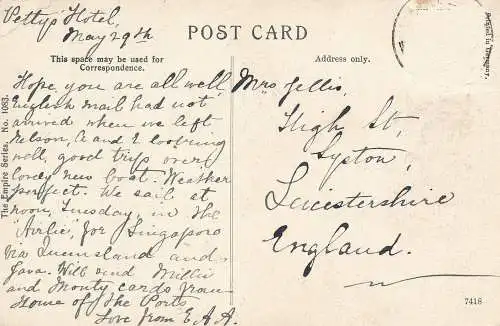 Petty's Hotel,
May 29th
POST CARD
This space may be used for
Correspondence.
Address only.
Hope you are all well
English mail had not
arrived when we left
Nelson, A and I looking
well, good trip over
lovely new boat. Weather
perfect. We sail at
noon, Tuesday, in the
"Airlie", for Singapore
via Queensland and
Java. Will send Millie
and Monty cards from
House of the Ports
Love from E. A. A.
Mrs Jellis,
High St,
Syston,
Leicestershire
England.
The Empire Series. No. 1083.
Printed in
7418